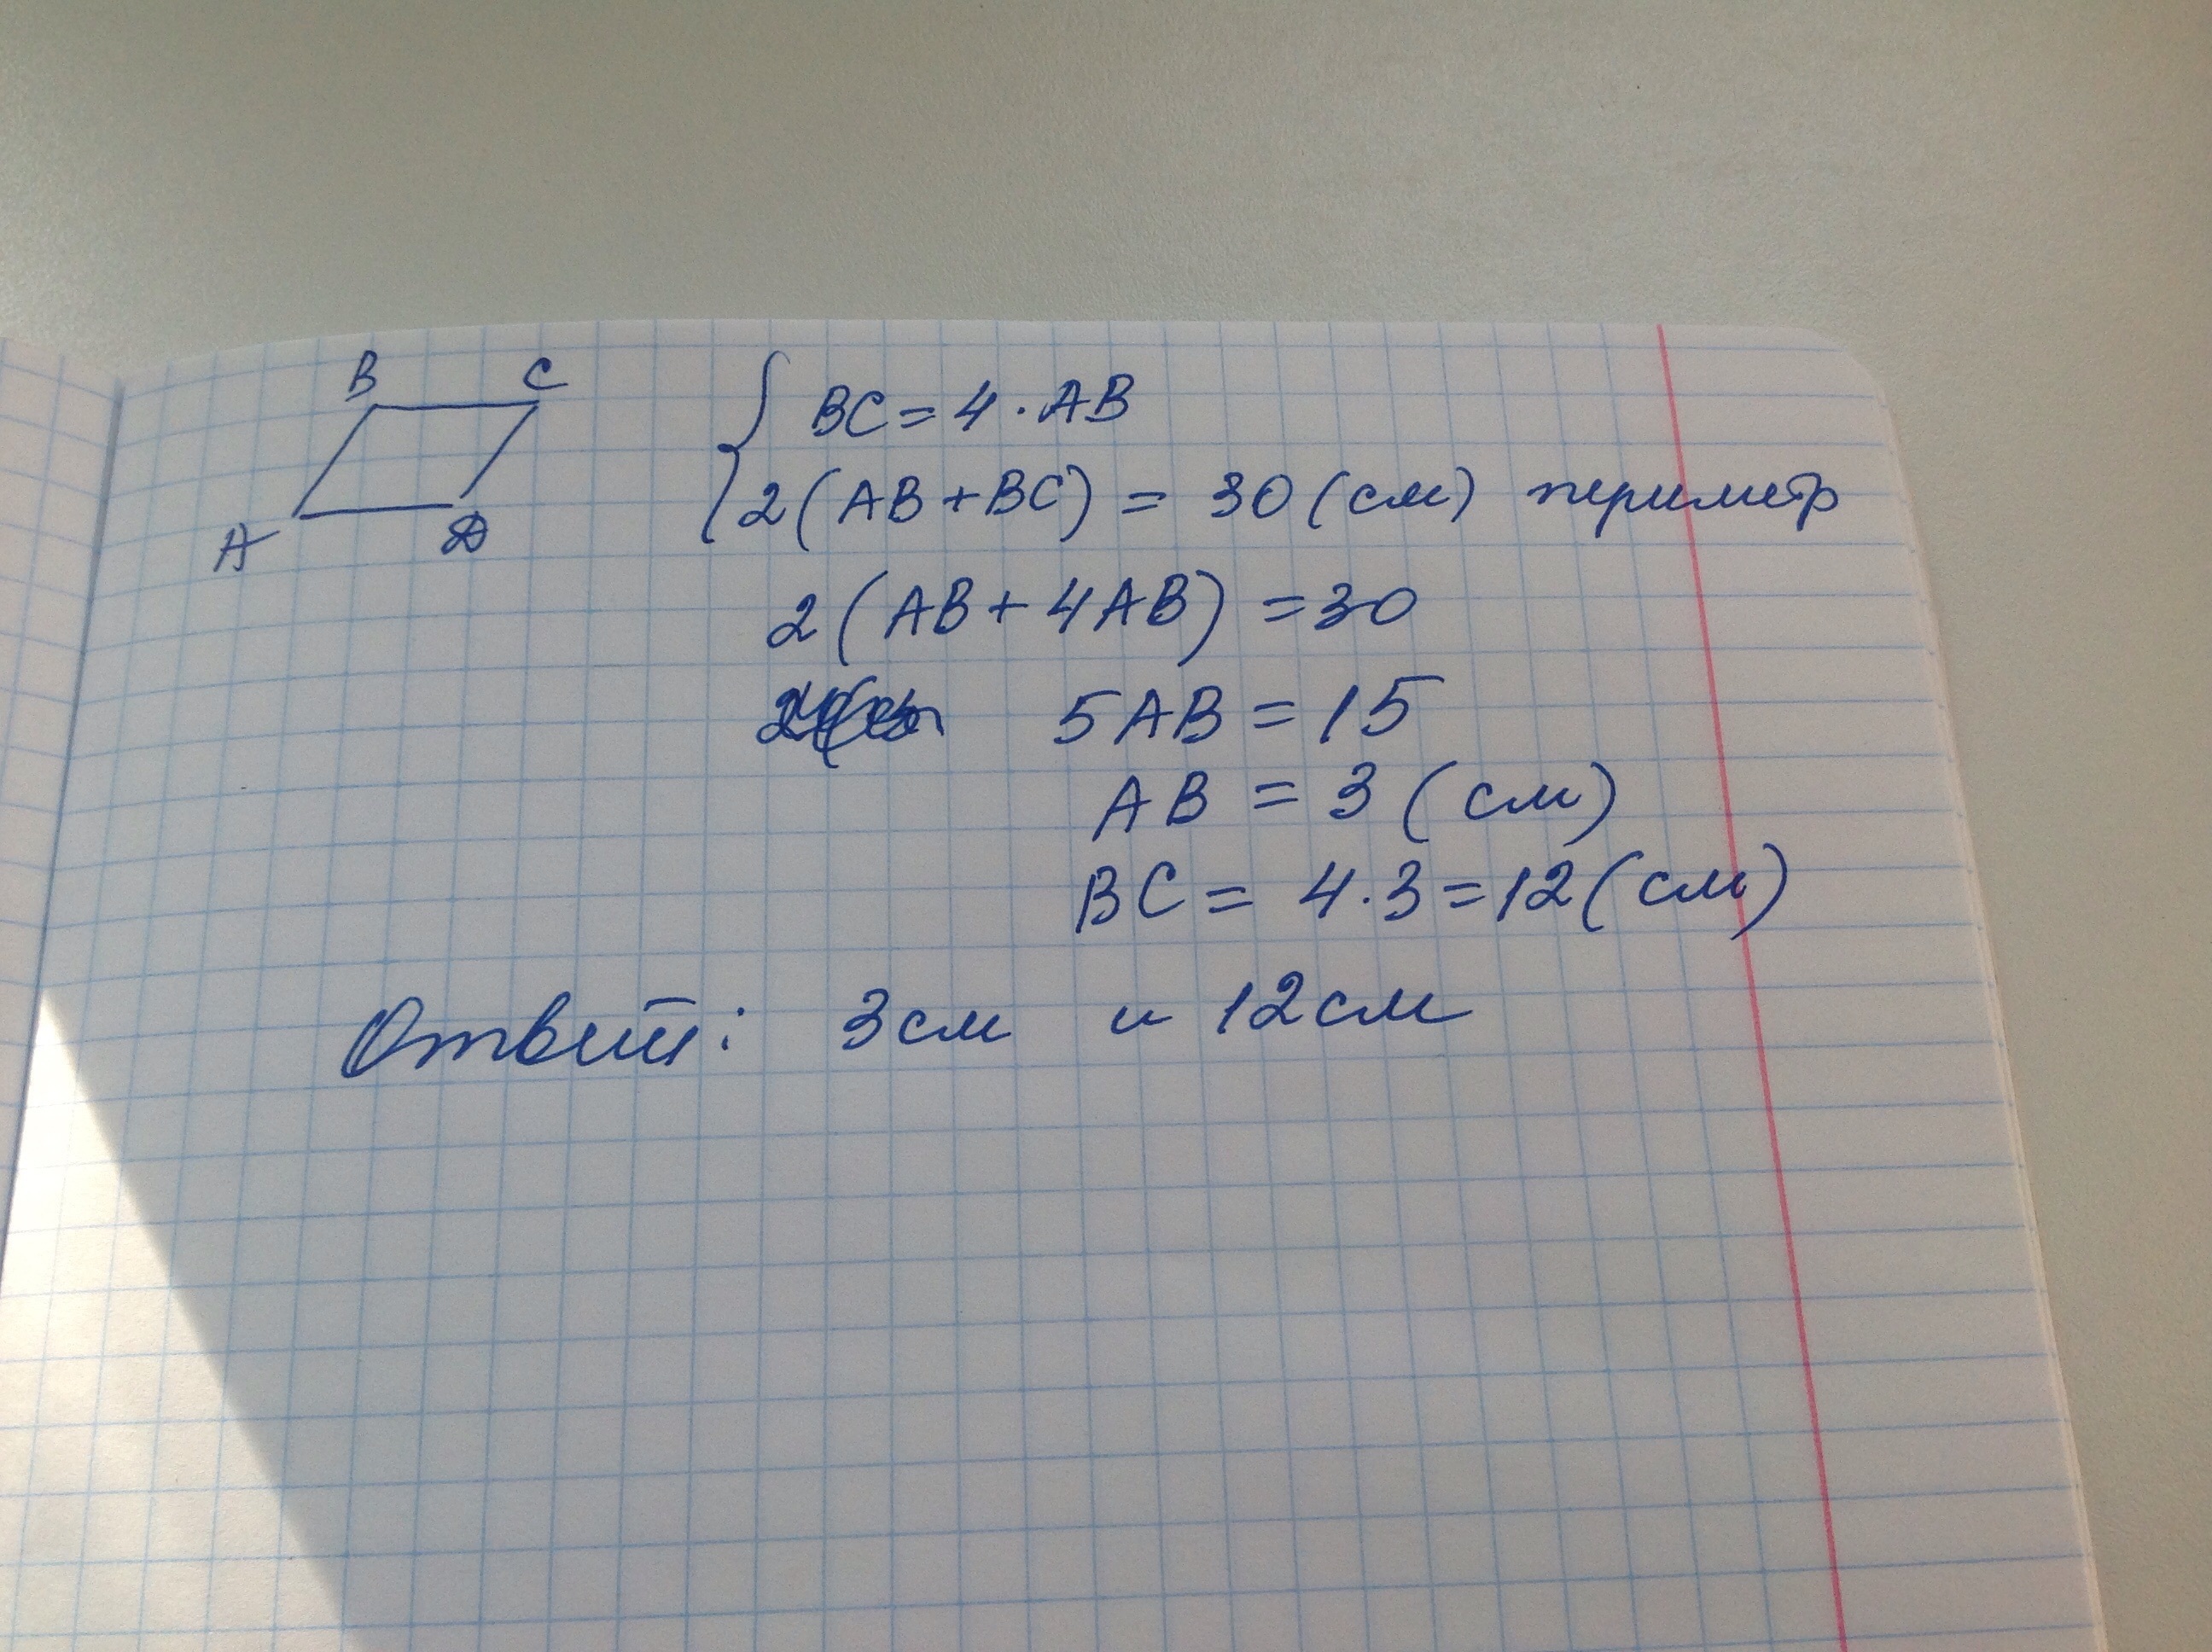 B C
A D
{ BC = 4 · AB
2(AB + BC) = 30 (см) периметр
2(AB + 4AB) = 30
5AB = 15
AB = 3 (см)
BC = 4 · 3 = 12 (см)
Ответ: 3 см и 12 см